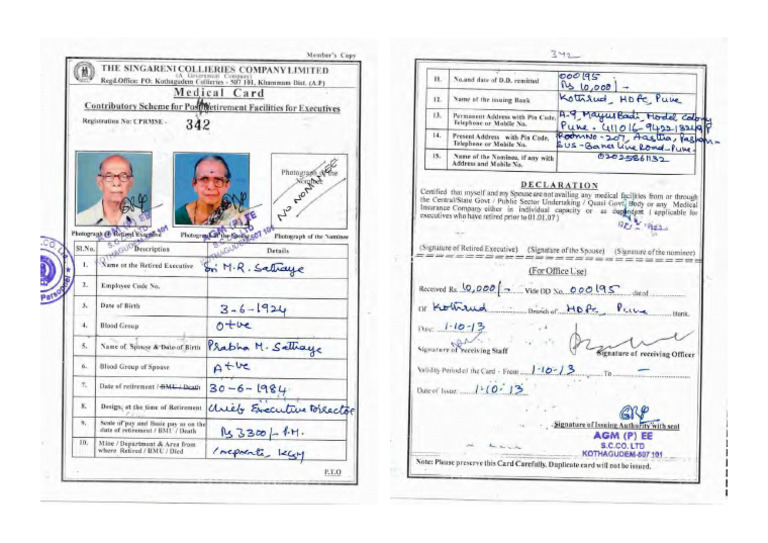 Member's Copy
THE SINGARENI COLLIERIES COMPANY LIMITED
(A Government Company)
Regd.Office: PO: Kothagudem Collieries - 507 101, Khammam Dist. (A.P)
Medical Card
Contributory Scheme for Post Retirement Facilities for Executives
Registration No: CPRMSE -
342
Photograph of the
Nominee
NO NOMINEE
AGM (P) EE
S.C.CO. LTD
KOTHAGUDEM-507 101
Photograph of Retired Executive
Photograph of the Spouse
Photograph of the Nominee
Sl.No. Description Details
1. Name of the Retired Executive Sri M.R. Sathaye
2. Employee Code No.
3. Date of Birth 3-6-1924
4. Blood Group O+ve
5. Name of Spouse & Date of Birth Prabha M. Sathaye
6. Blood Group of Spouse A+ve
7. Date of retirement / BMU / Death 30-6-1984
8. Design. at the time of Retirement Chief Executive Director
9. Scale of pay and Basic pay as on the
date of retirement / BMU / Death Rs 3300/- P.M.
10. Mine / Department & Area from
where Retired / BMU / Died
P.T.O
342
11. No.and date of D.D. remitted 000195
Rs 10,000/-
12. Name of the issuing Bank Kothrud, HDFC, Pune
13. Permanent Address with Pin Code, A-9, Mayur Badi, Model Colony
Telephone or Mobile No. Pune. 411016
14. Present Address with Pin Code, Room No-207, Aastha,
Telephone or Mobile No. SUS-Baner Line Road-Pune.
15. Name of the Nominee, if any with
Address and Mobile No. 02025861132
DECLARATION
Certified that myself and my Spouse are not availing any medical facilities from or through
the Central/State Govt / Public Sector Undertaking / Quasi Govt. Body or any Medical
Insurance Company either in individual capacity or as dependent ( applicable for
executives who have retired prior to 01.01.07 )
(Signature of Retired Executive) (Signature of the Spouse) (Signature of the nominee)
(For Office Use)
Received Rs. 10,000/- Vide DD No. 000195 dated
Of Kothrud Branch of HDFC, Pune Bank.
Date: 1-10-13
Signature of receiving Staff
Signature of receiving Officer
Validity Period of the Card - From 1-10-13 To -
Date of Issue 1-10-13
Signature of Issuing Authority with seal
AGM (P) EE
S.C.CO. LTD
KOTHAGUDEM-507 101
Note: Please preserve this Card Carefully, Duplicate card will not be issued.